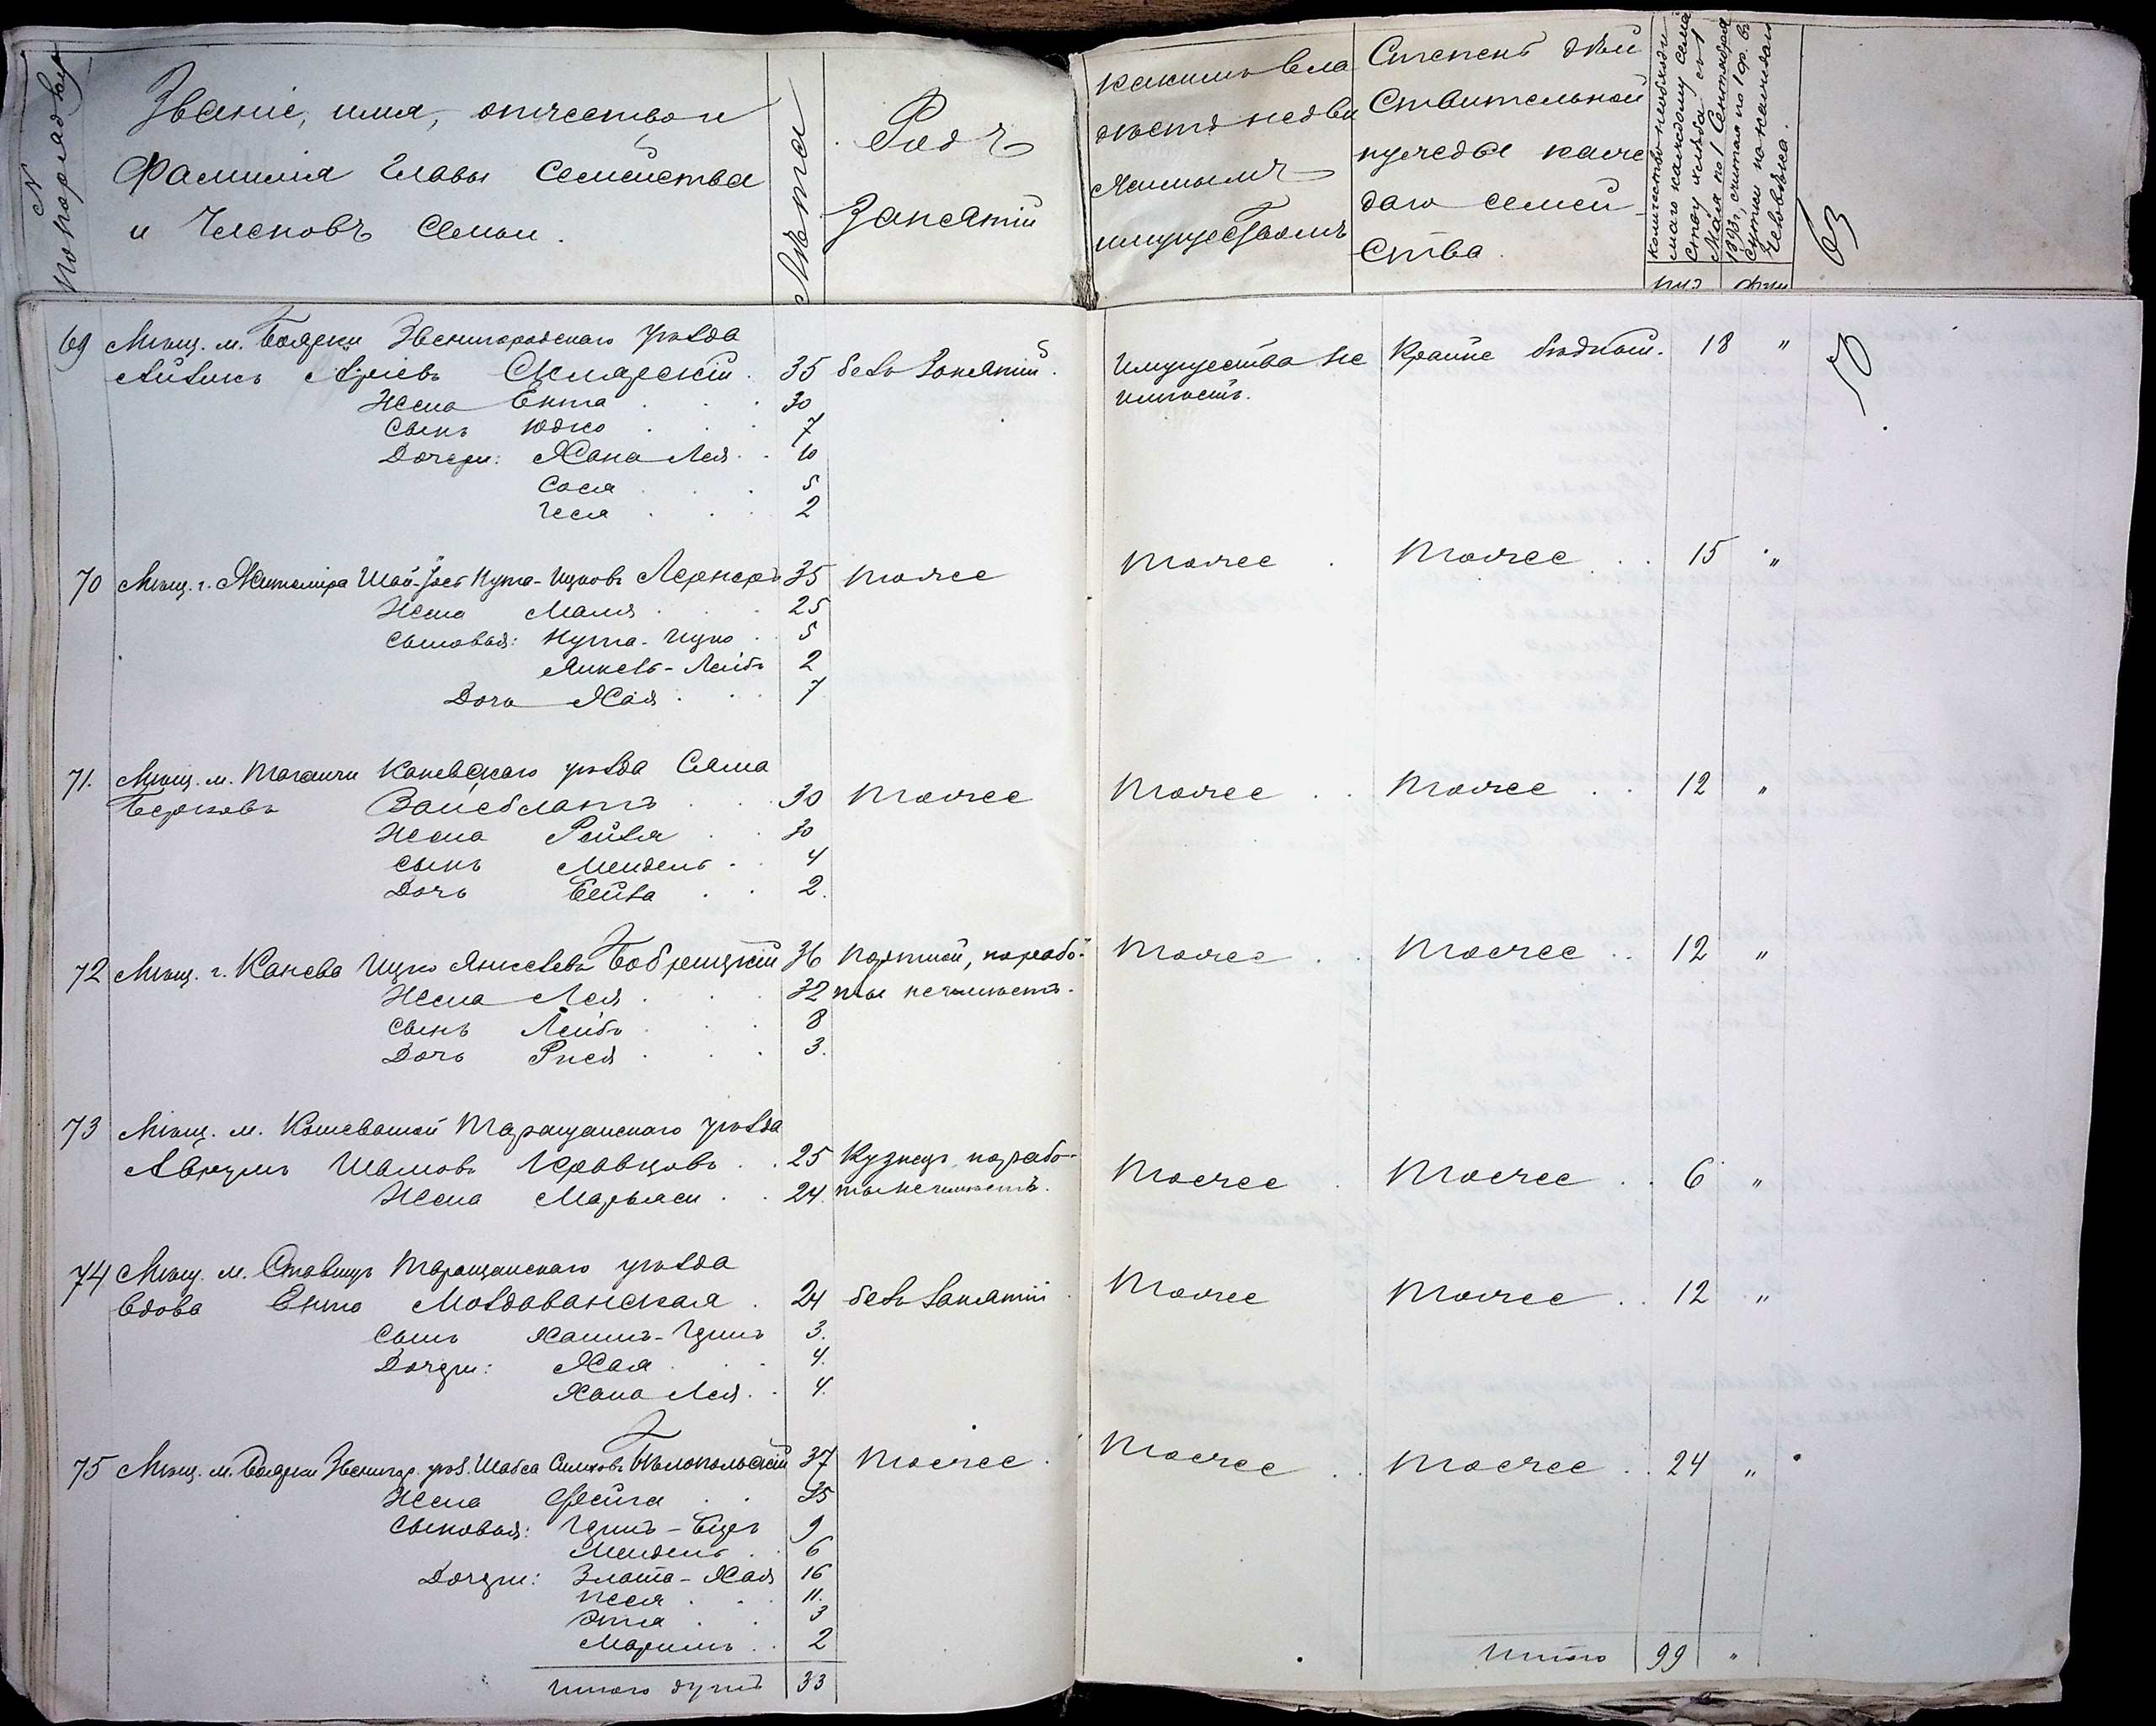 № по порядку
Званіе, имя, отчество и
Фамилія Главы Семейства
и Членовъ Семьи.
Лѣта
Родъ
Занятій
какимъ вла
дѣетъ недви
жимымъ
имуществомъ
Степень дѣй
ствительной
нужды каж
даго семей
ства.
Количество необходи
маго каждому семей
ству хлѣба съ 1
Мая по 1 Сентября
1893 г., считая по 1 ф. въ
сутки на каждаго
человѣка.
пуд. фун.
63
69 Мѣщ. м. Боярки Звенигородскаго уѣзда
Айзикъ Аріевъ Склярскій. 35 безъ занятій. Имущества не Крайне бѣднот. 18 "
имѣетъ.
50
Жена Ента 30
Сынъ Юдко 7
Дочери: Хана Лея 10
Сося 5
Чеся 2
70 Мѣщ. г. Житоміра Шай-Іось Нута-Ицковъ Лернеръ 35 тоже тоже тоже 15 "
Жена Маля 25
Сыновья: Нута-Ицко 5
Янкель-Лейбъ 2
Дочь Хая 7
71. Мѣщ. м. Таганчи Каневскаго уѣзда Сяма
Берковъ Вайсблатъ 30 тоже тоже тоже 12 "
Жена Рейзя 30
Сынъ Мендель 4
Дочь Бейла 2.
72 Мѣщ. г. Канева Ицко Янкелевъ Бобрицкій 36 портной, но рабо- тоже тоже 12 "
Жена Лея 32 ты не имѣетъ.
Сынъ Лейбъ 8
Дочь Рися 3.
73 Мѣщ. м. Кошеватой Таращанскаго уѣзда
Аврумъ Шамовъ Кравцовъ 25 Кузнецъ, но рабо- тоже тоже 6 "
Жена Марьяси 24. ты не имѣетъ.
74 Мѣщ. м. Ставищъ Таращанскаго уѣзда
Вдова Ента Молдаванская 24 безъ занятій тоже тоже 12 "
Сынъ Хаимъ-Гершъ 3.
Дочери: Хая 4.
Хана Лея 4.
75 Мѣщ. м. Боярки Звенигор. уѣз. Шабса Симховъ Бѣлопольскій 37 тоже. тоже тоже 24 "
Жена Фейга 35
Сыновья: Гершъ-Беръ 9
Мендель 6
Дочери: Злата-Хая 16
Песя 11.
Этля 3
Маримъ 2
Итого душъ 33
Итого 99 "